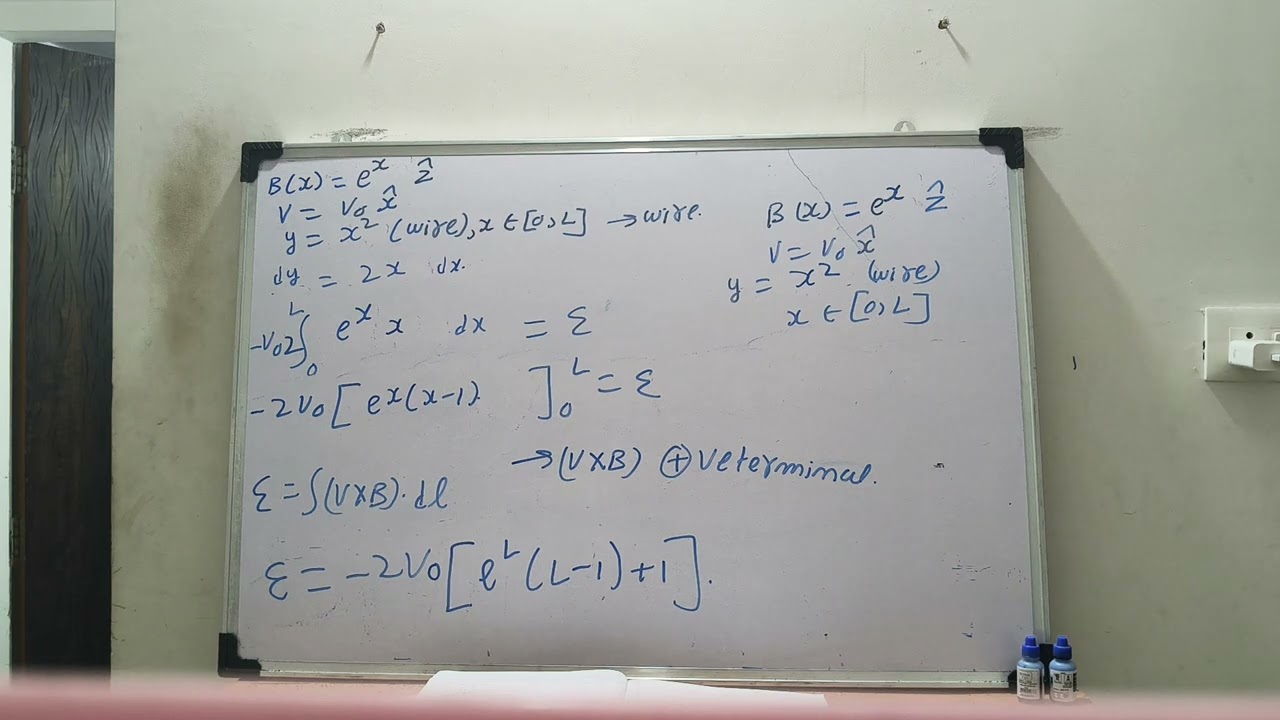 B(x) = e^x ẑ
V = V₀ x̂
y = x² (wire), x ∈ [0, L] → wire.
dy = 2x dx.
-V₀2∫₀^L e^x x dx = ε
-2V₀[e^x(x-1)]₀^L = ε
→ (V×B) ⊕ve terminal.
ε = ∫(V×B)·dl
ε = -2V₀[e^L(L-1)+1].
B(x) = e^x ẑ
V = V₀ x̂
y = x² (wire)
x ∈ [0, L]